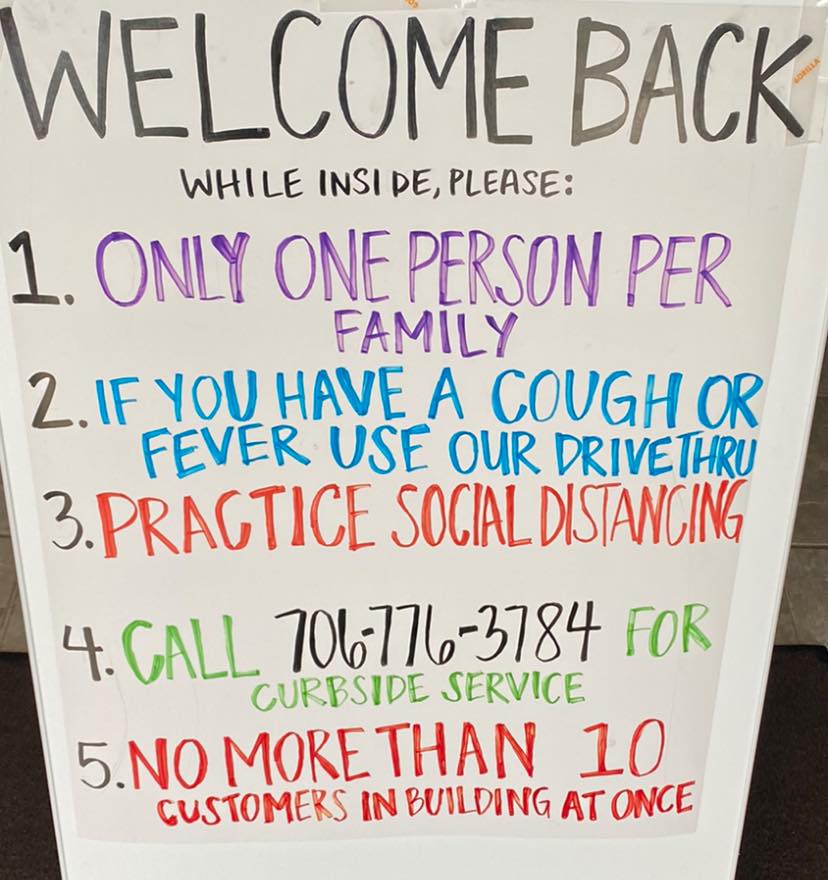 WELCOME BACK
WHILE INSIDE, PLEASE:
1. ONLY ONE PERSON PER
FAMILY
2. IF YOU HAVE A COUGH OR
FEVER USE OUR DRIVE THRU
3. PRACTICE SOCIAL DISTANCING
4. CALL 706-776-3784 FOR
CURBSIDE SERVICE
5. NO MORE THAN 10
CUSTOMERS IN BUILDING AT ONCE
GORILLA